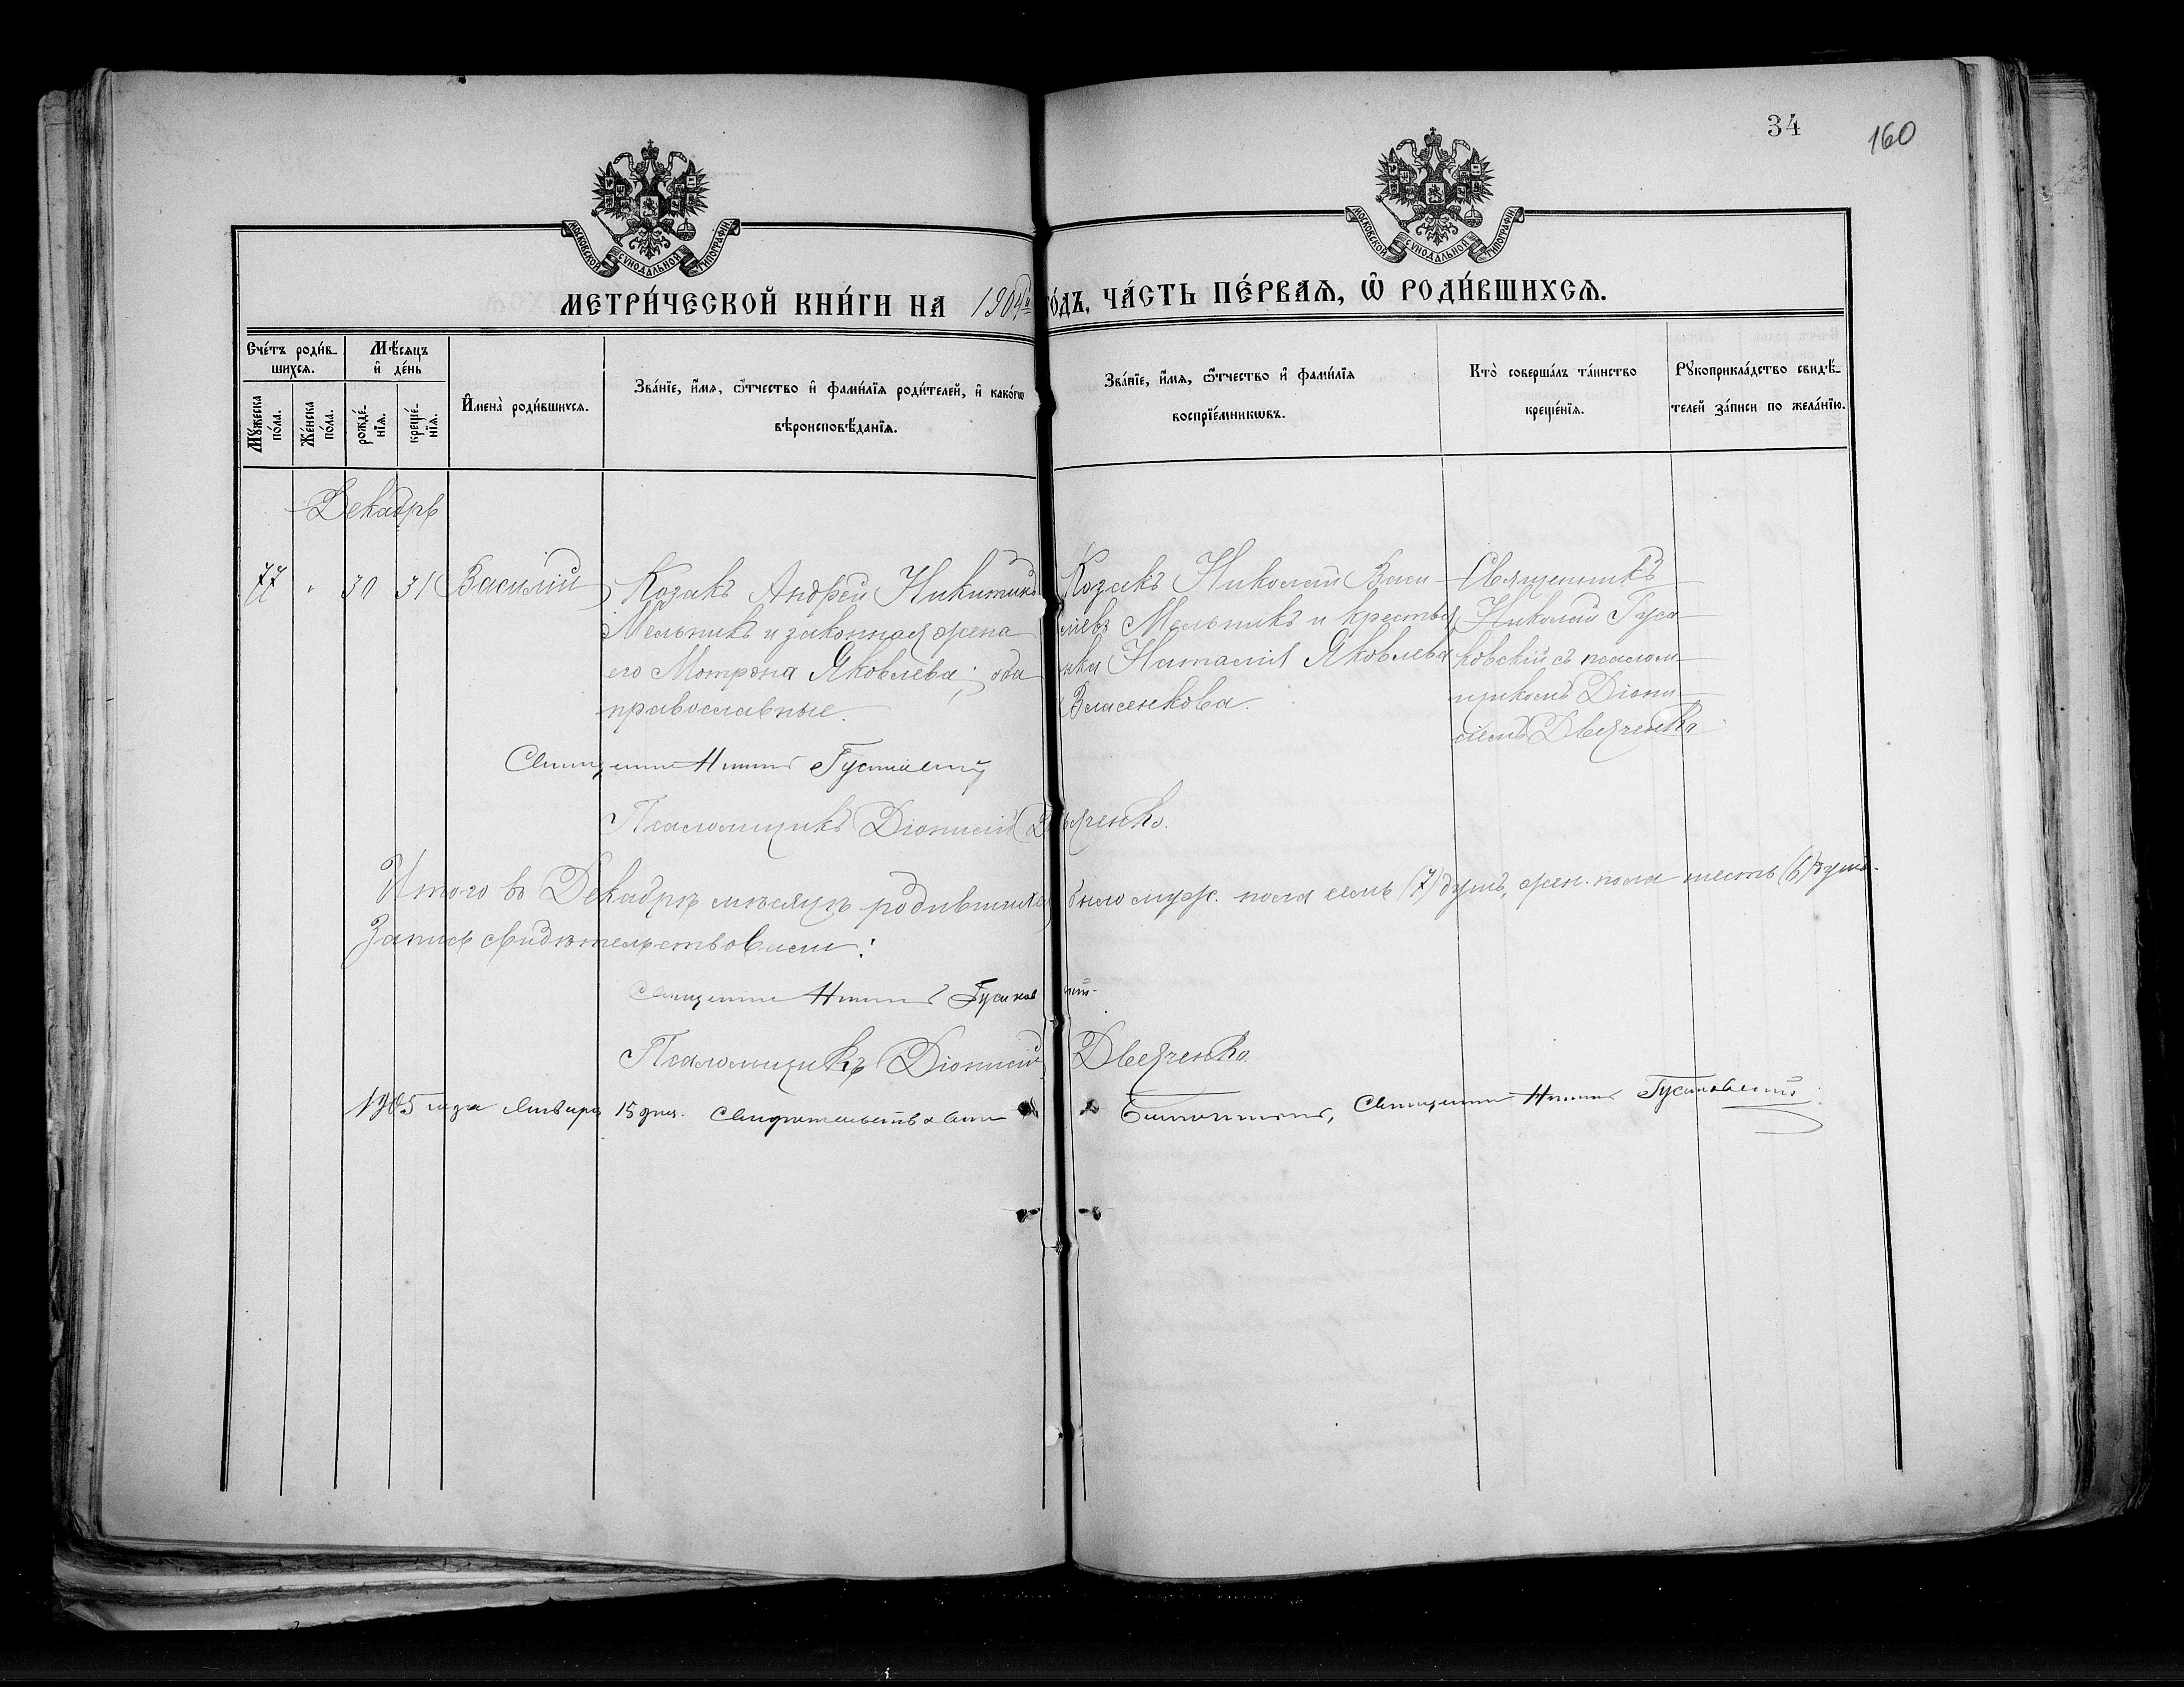 34
160
МОСКОВСКОЙ СѴНОДАЛЬНОЙ ТИПОГРАФІИ
МОСКОВСКОЙ СѴНОДАЛЬНОЙ ТИПОГРАФІИ
МЕТРИ́ЧЕСКОЙ КНИ́ГИ НА 1904й ГО́ДЪ, ЧА́СТЬ ПЕ́РВАѦ, Ѽ РОДИ́ВШИХСѦ.
Сче́тъ роди́в-
шихсѧ.
Мꙋ́жеска по́ла.
Же́нска по́ла.
Мѣ́сѧцъ
и҆ де́нь
рожде́-
нїѧ.
креще́-
нїѧ.
И҆мена̀ роди́вшихсѧ.
Зва́нїе, и҆́мѧ, ѻ҆́тчество и҆ фами́лїѧ роди́телей, и҆ како́гѡ
вѣроисповѣ́данїѧ.
Зва́нїе, и҆́мѧ, ѻ҆́тчество и҆ фами́лїѧ
воспрїе́мникѡвъ.
Кто̀ соверша́лъ та́инство
креще́нїѧ.
Рꙋкоприкла́дство свидѣ́-
телей за́писи по жела́нїю.
Декабрь
77 " 30 31 Василій
Козакъ Андрей Никитинъ
Мельникъ и законная жена
его Мотрона Яковлева; оба
православные.
Козакъ Николай Васи-
ліевъ Мельникъ и крестья
нка Наталія Яковлева
Власенкова.
Священникъ
Николай Гуса-
ковскій съ псалом-
щикомъ Діони-
сіемъ Двеяченко
Священникъ Гусаковскій
Псаломщикъ Діонисій Двеяченко.
Итого въ Декабрѣ мѣсяцѣ родившихся было муж. пола семь (7) душъ, жен. пола шесть (6) душъ.
Запись свидѣтельствовали:
Священникъ Гусаковскій.
Псаломщикъ Діонисій Двеяченко
1905 года Января 15 дня. Свидѣтельствовали Священникъ Гусаковскій.